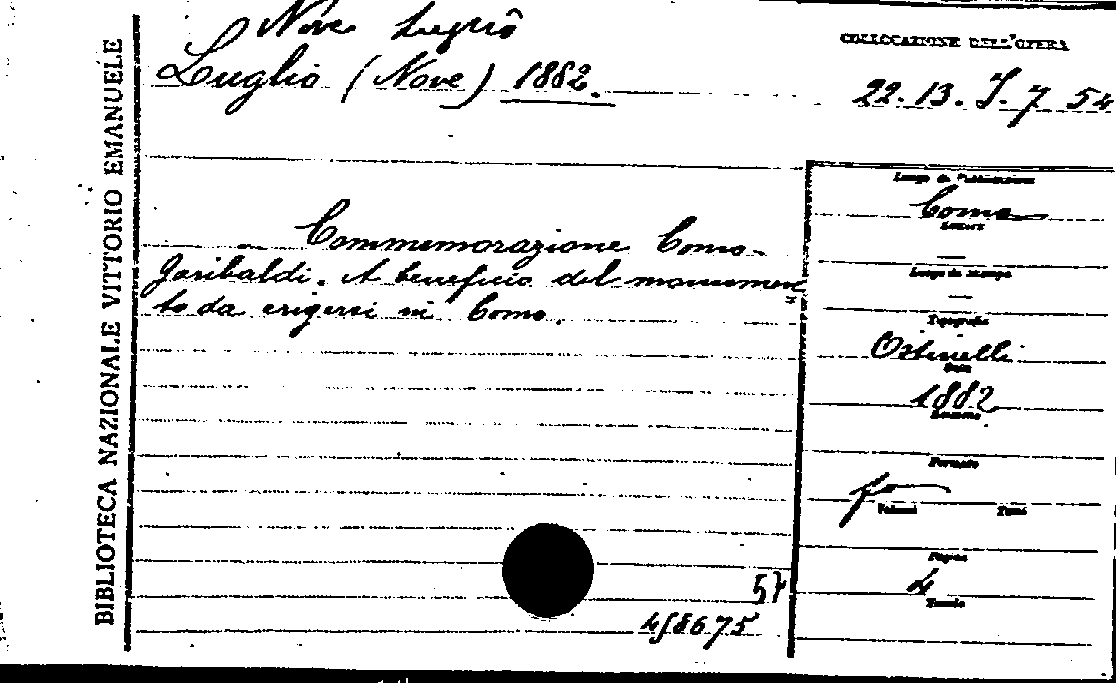 Nove Luglio
Luglio (Nove) 1882.
COLLOCAZIONE DELL'OPERA
22.13.I.7 54
BIBLIOTECA NAZIONALE VITTORIO EMANUELE
Commemorazione Como-
Garibaldi. A beneficio del monumen
to da erigersi in Como.
Luogo di Pubblicazione
Como
Luogo di stampa
—
Tipografia
Ostinelli
Data
1882
Formato
fo
Volumi Tomi
Pagine
4
Tavole
57
458675